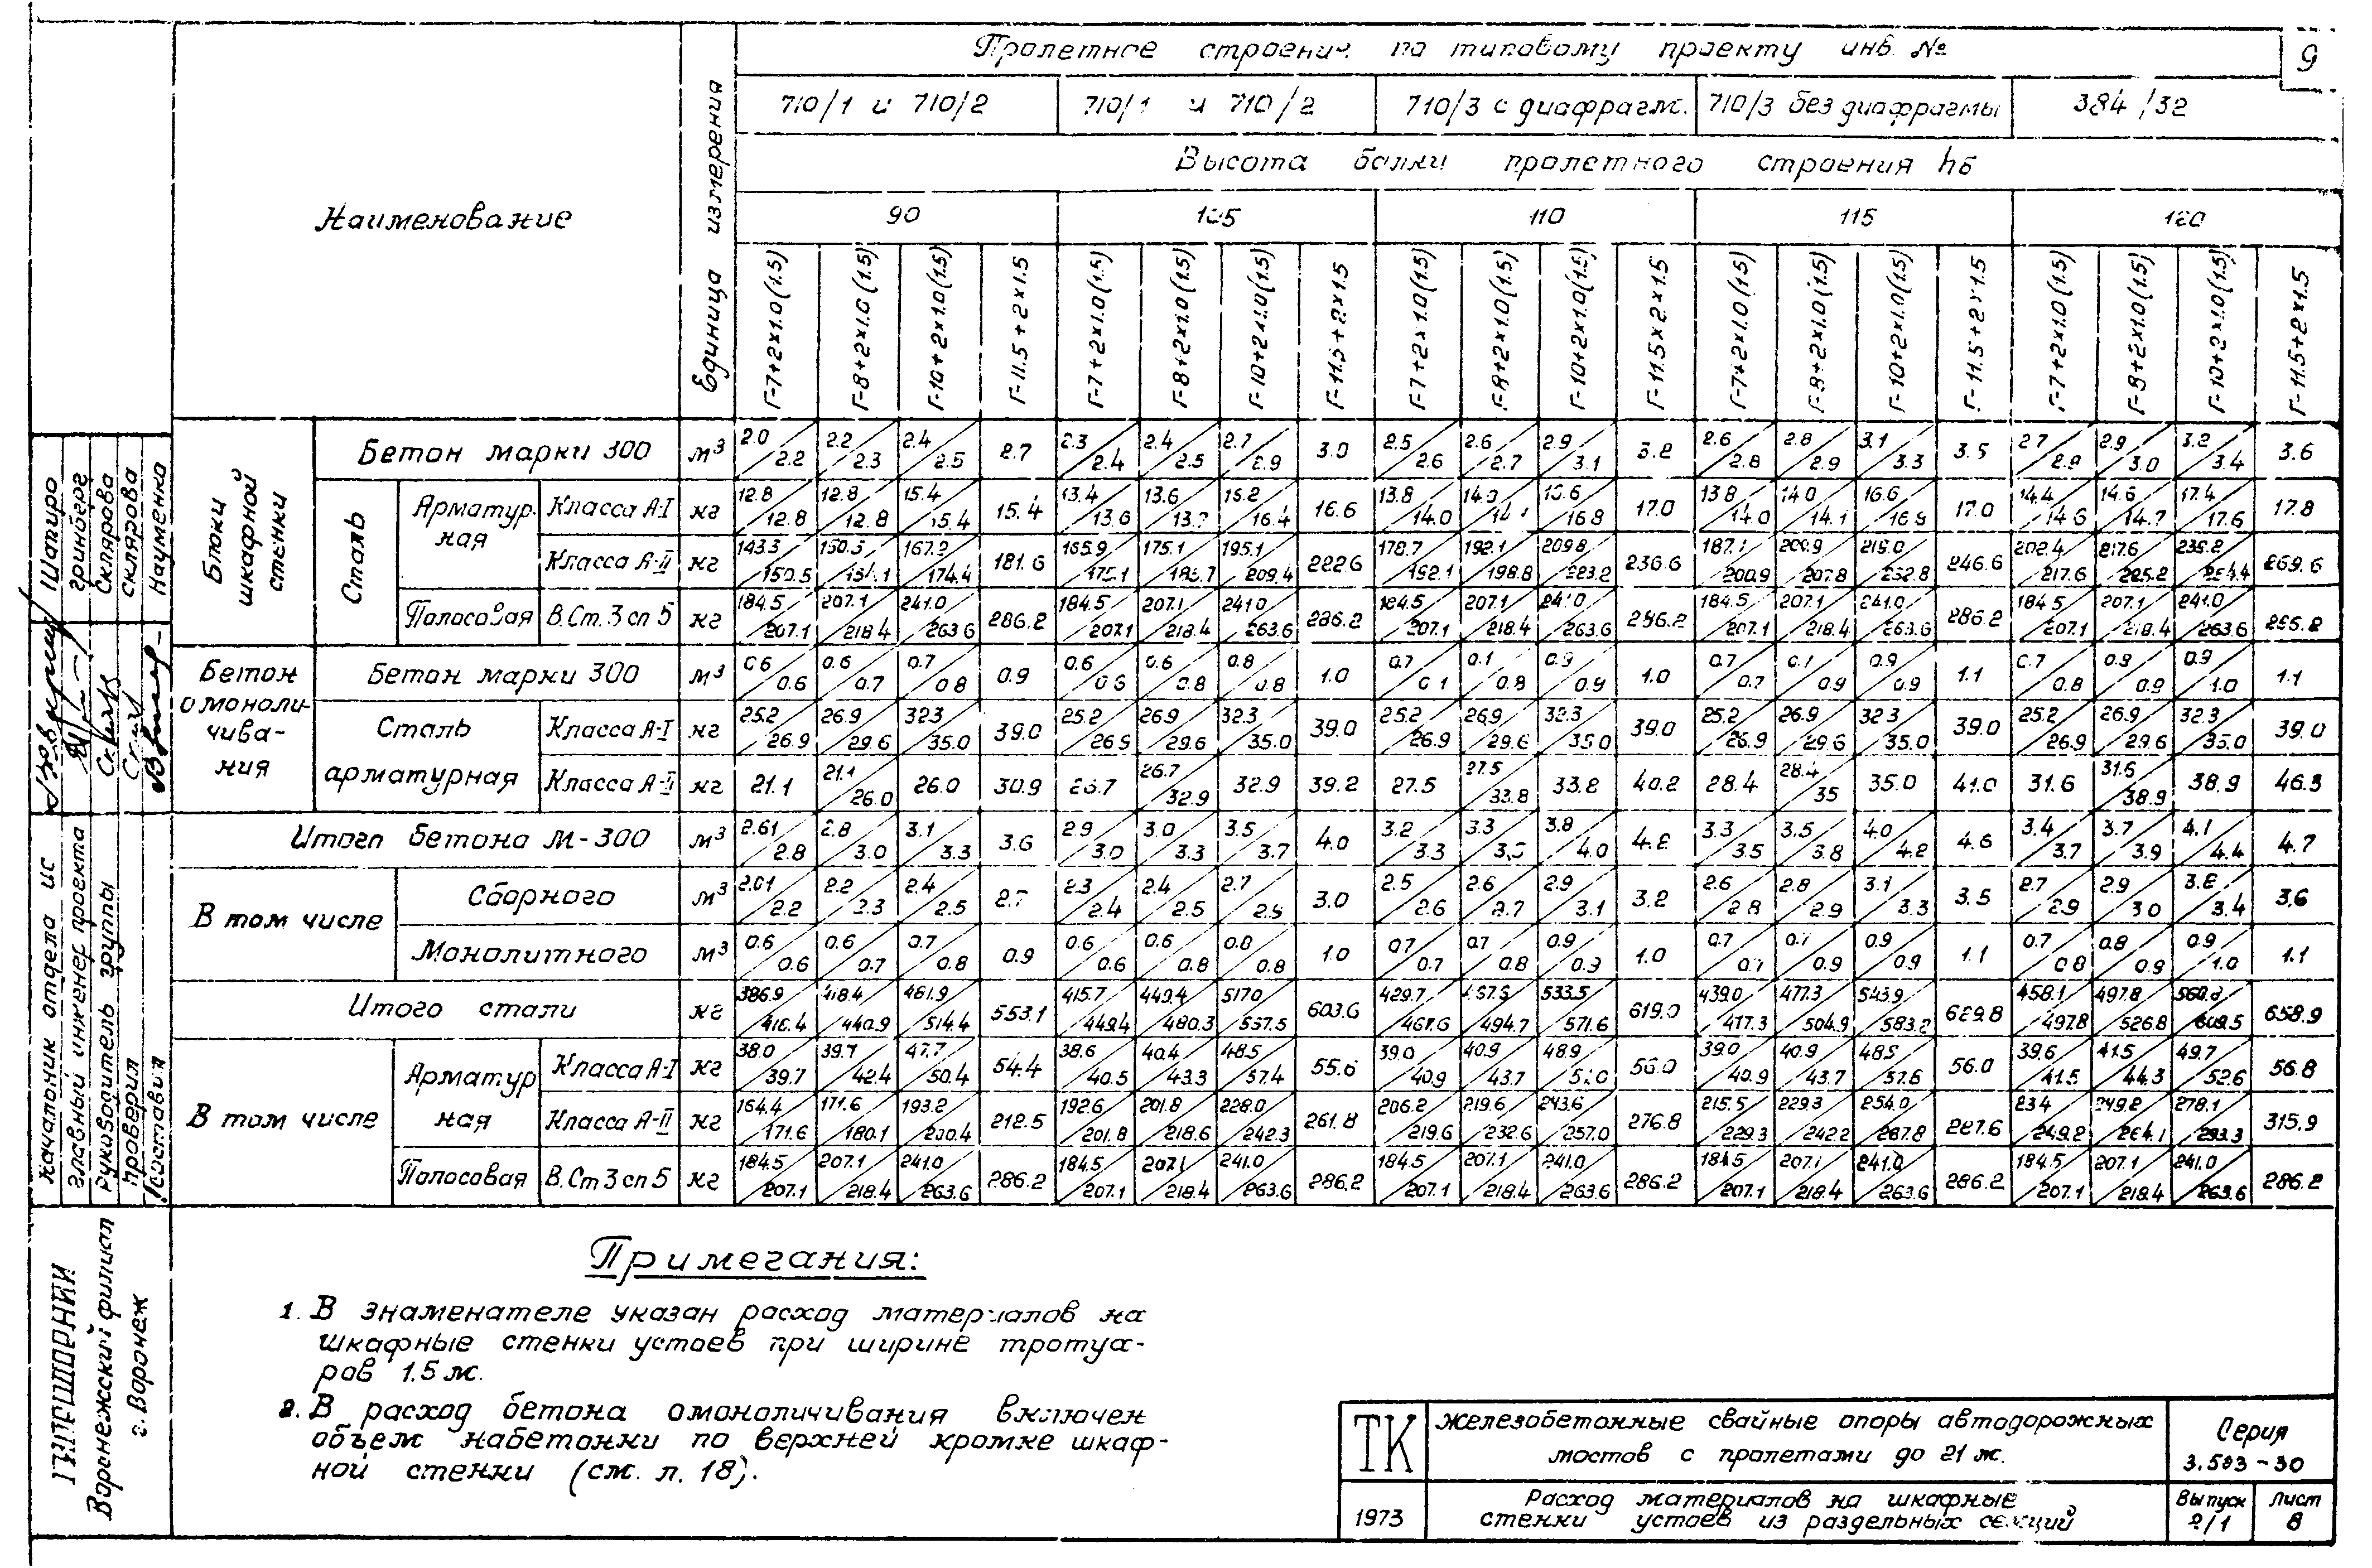 9
Пролетное строение по типовому проекту инв. №
710/1 и 710/2 710/1 и 710/2 710/3 с диафрагм. 710/3 без диафрагмы 384/32
Высота балки пролетного строения hб
Наименование Единица измерения
90 105 110 115 120
Г-7+2×1.0(1.5) Г-8+2×1.0(1.5) Г-10+2×1.0(1.5) Г-11.5+2×1.5 Г-7+2×1.0(1.5) Г-8+2×1.0(1.5) Г-10+2×1.0(1.5) Г-11.5+2×1.5 Г-7+2×1.0(1.5) Г-8+2×1.0(1.5) Г-10+2×1.0(1.5) Г-11.5×2×1.5 Г-7+2×1.0(1.5) Г-8+2×1.0(1.5) Г-10+2×1.0(1.5) Г-11.5+2×1.5 Г-7+2×1.0(1.5) Г-8+2×1.0(1.5) Г-10+2×1.0(1.5) Г-11.5+2×1.5
Блоки шкафной стенки
Бетон марки 300 м³ 2.0/2.2 2.2/2.3 2.4/2.5 2.7 2.3/2.4 2.4/2.5 2.7/2.9 3.0 2.5/2.6 2.6/2.7 2.9/3.1 3.2 2.6/2.8 2.8/2.9 3.1/3.3 3.5 2.7/2.9 2.9/3.0 3.2/3.4 3.6
Сталь
Арматурная Класса А-I кг 12.8/12.8 12.8/12.8 15.4/15.4 15.4 13.4/13.6 13.6/13.7 16.2/16.4 16.6 13.8/14.0 14.0/14.1 16.6/16.8 17.0 13.8/14.0 14.0/14.1 16.6/16.8 17.0 14.4/14.6 14.6/14.7 17.4/17.6 17.8
Класса А-II кг 143.3/150.5 150.5/154.1 167.2/174.4 181.6 165.9/175.1 175.1/185.7 195.1/209.4 222.6 178.7/192.1 192.1/198.8 209.8/223.2 236.6 187.1/200.9 200.9/207.8 219.0/232.8 246.6 202.4/217.6 217.6/225.2 239.2/254.4 269.6
Полосовая В.Ст.3сп5 кг 184.5/207.1 207.1/218.4 241.0/263.6 286.2 184.5/207.1 207.1/218.4 241.0/263.6 286.2 184.5/207.1 207.1/218.4 241.0/263.6 286.2 184.5/207.1 207.1/218.4 241.0/263.6 286.2 184.5/207.1 207.1/218.4 241.0/263.6 286.2
Бетон омоноличивания
Бетон марки 300 м³ 0.6/0.6 0.6/0.7 0.7/0.8 0.9 0.6/0.6 0.6/0.8 0.8/0.8 1.0 0.7/0.7 0.7/0.8 0.9/0.9 1.0 0.7/0.7 0.7/0.9 0.9/0.9 1.1 0.7/0.8 0.8/0.9 0.9/1.0 1.1
Сталь арматурная
Класса А-I кг 25.2/26.9 26.9/29.6 32.3/35.0 39.0 25.2/26.9 26.9/29.6 32.3/35.0 39.0 25.2/26.9 26.9/29.6 32.3/35.0 39.0 25.2/26.9 26.9/29.6 32.3/35.0 39.0 25.2/26.9 26.9/29.6 32.3/35.0 39.0
Класса А-II кг 21.1 21.1/26.0 26.0 30.9 26.7 26.7/32.9 32.9 39.2 27.5 27.5/33.8 33.8 40.2 28.4 28.4/35 35.0 41.0 31.6 31.6/38.9 38.9 46.3
Итого бетона М-300 м³ 2.61/2.8 2.8/3.0 3.1/3.3 3.6 2.9/3.0 3.0/3.3 3.5/3.7 4.0 3.2/3.3 3.3/3.5 3.8/4.0 4.2 3.3/3.5 3.5/3.8 4.0/4.2 4.6 3.4/3.7 3.7/3.9 4.1/4.4 4.7
В том числе
Сборного м³ 2.01/2.2 2.2/2.3 2.4/2.5 2.7 2.3/2.4 2.4/2.5 2.7/2.9 3.0 2.5/2.6 2.6/2.7 2.9/3.1 3.2 2.6/2.8 2.8/2.9 3.1/3.3 3.5 2.7/2.9 2.9/3.0 3.2/3.4 3.6
Монолитного м³ 0.6/0.6 0.6/0.7 0.7/0.8 0.9 0.6/0.6 0.6/0.8 0.8/0.8 1.0 0.7/0.7 0.7/0.8 0.9/0.9 1.0 0.7/0.7 0.7/0.9 0.9/0.9 1.1 0.7/0.8 0.8/0.9 0.9/1.0 1.1
Итого стали кг 386.9/416.4 418.4/440.9 461.9/514.4 553.1 415.7/449.4 449.4/480.3 517.0/557.5 603.6 429.7/467.6 467.6/494.7 533.5/571.6 619.0 439.0/477.3 477.3/504.9 543.9/583.2 629.8 458.1/497.8 497.8/526.8 609.5 658.9
В том числе
Арматурная Класса А-I кг 38.0/39.7 39.7/42.4 47.7/50.4 54.4 38.6/40.5 40.4/43.3 48.5/57.4 55.6 39.0/40.9 40.9/43.7 48.9/ 56.0 39.0/40.9 40.9/43.7 48.9/57.6 56.0 39.6/41.5 41.5/44.3 49.7/52.6 56.8
Класса А-II кг 164.4/171.6 171.6/180.1 193.2/200.4 212.5 192.6/201.8 201.8/218.6 228.0/242.3 261.8 206.2/219.6 219.6/232.6 243.6/257.0 276.8 215.5/229.3 229.3/242.2 254.0/267.8 287.6 234/249.2 249.2/264.1 278.1/293.3 315.9
Полосовая В.Ст3сп5 кг 184.5/207.1 207.1/218.4 241.0/263.6 286.2 184.5/207.1 207.1/218.4 241.0/263.6 286.2 184.5/207.1 207.1/218.4 241.0/263.6 286.2 184.5/207.1 207.1/218.4 241.0/263.6 286.2 184.5/207.1 207.1/218.4 241.0/263.6 286.2
Начальник отдела ИС Шапиро
Главный инженер проекта Гринберг
Руководитель группы Склярова
Проверил Склярова
Составил Науменко
ГИПРОДОРНИИ
Воронежский филиал
г. Воронеж
Примечания:
1. В знаменателе указан расход материалов на
шкафные стенки устоев при ширине тротуа-
ров 1.5 м.
2. В расход бетона омоноличивания включен
объем набетонки по верхней кромке шкаф-
ной стенки (см. л. 18).
ТК
Железобетонные свайные опоры автодорожных
мостов с пролетами до 21 м.
Серия
3.503-30
1973
Расход материалов на шкафные
стенки устоев из раздельных секций
Выпуск
2/1
Лист
8